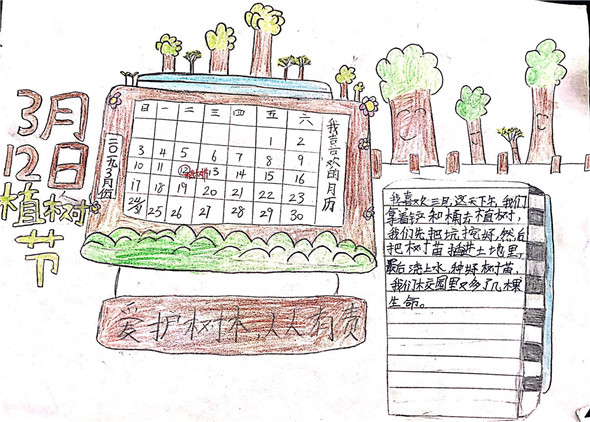 3月
12日
植树
节
二〇一九3月份
日 一 二 三 四 五 六
1 2
3 4 5 6 7 8 9
10 11 12 植树节 13 14 15 16
17 18 19 20 21 22 23
24/31 25 26 27 28 29 30
我喜欢的月历
爱护树木,人人有责
我喜欢三月,这天下午,我们
拿着铲和桶去植树,
我们先把坑挖好,然后
把树苗插进土地里,
最后浇上水,种好树苗,
我们校园里又多了几棵
生命。